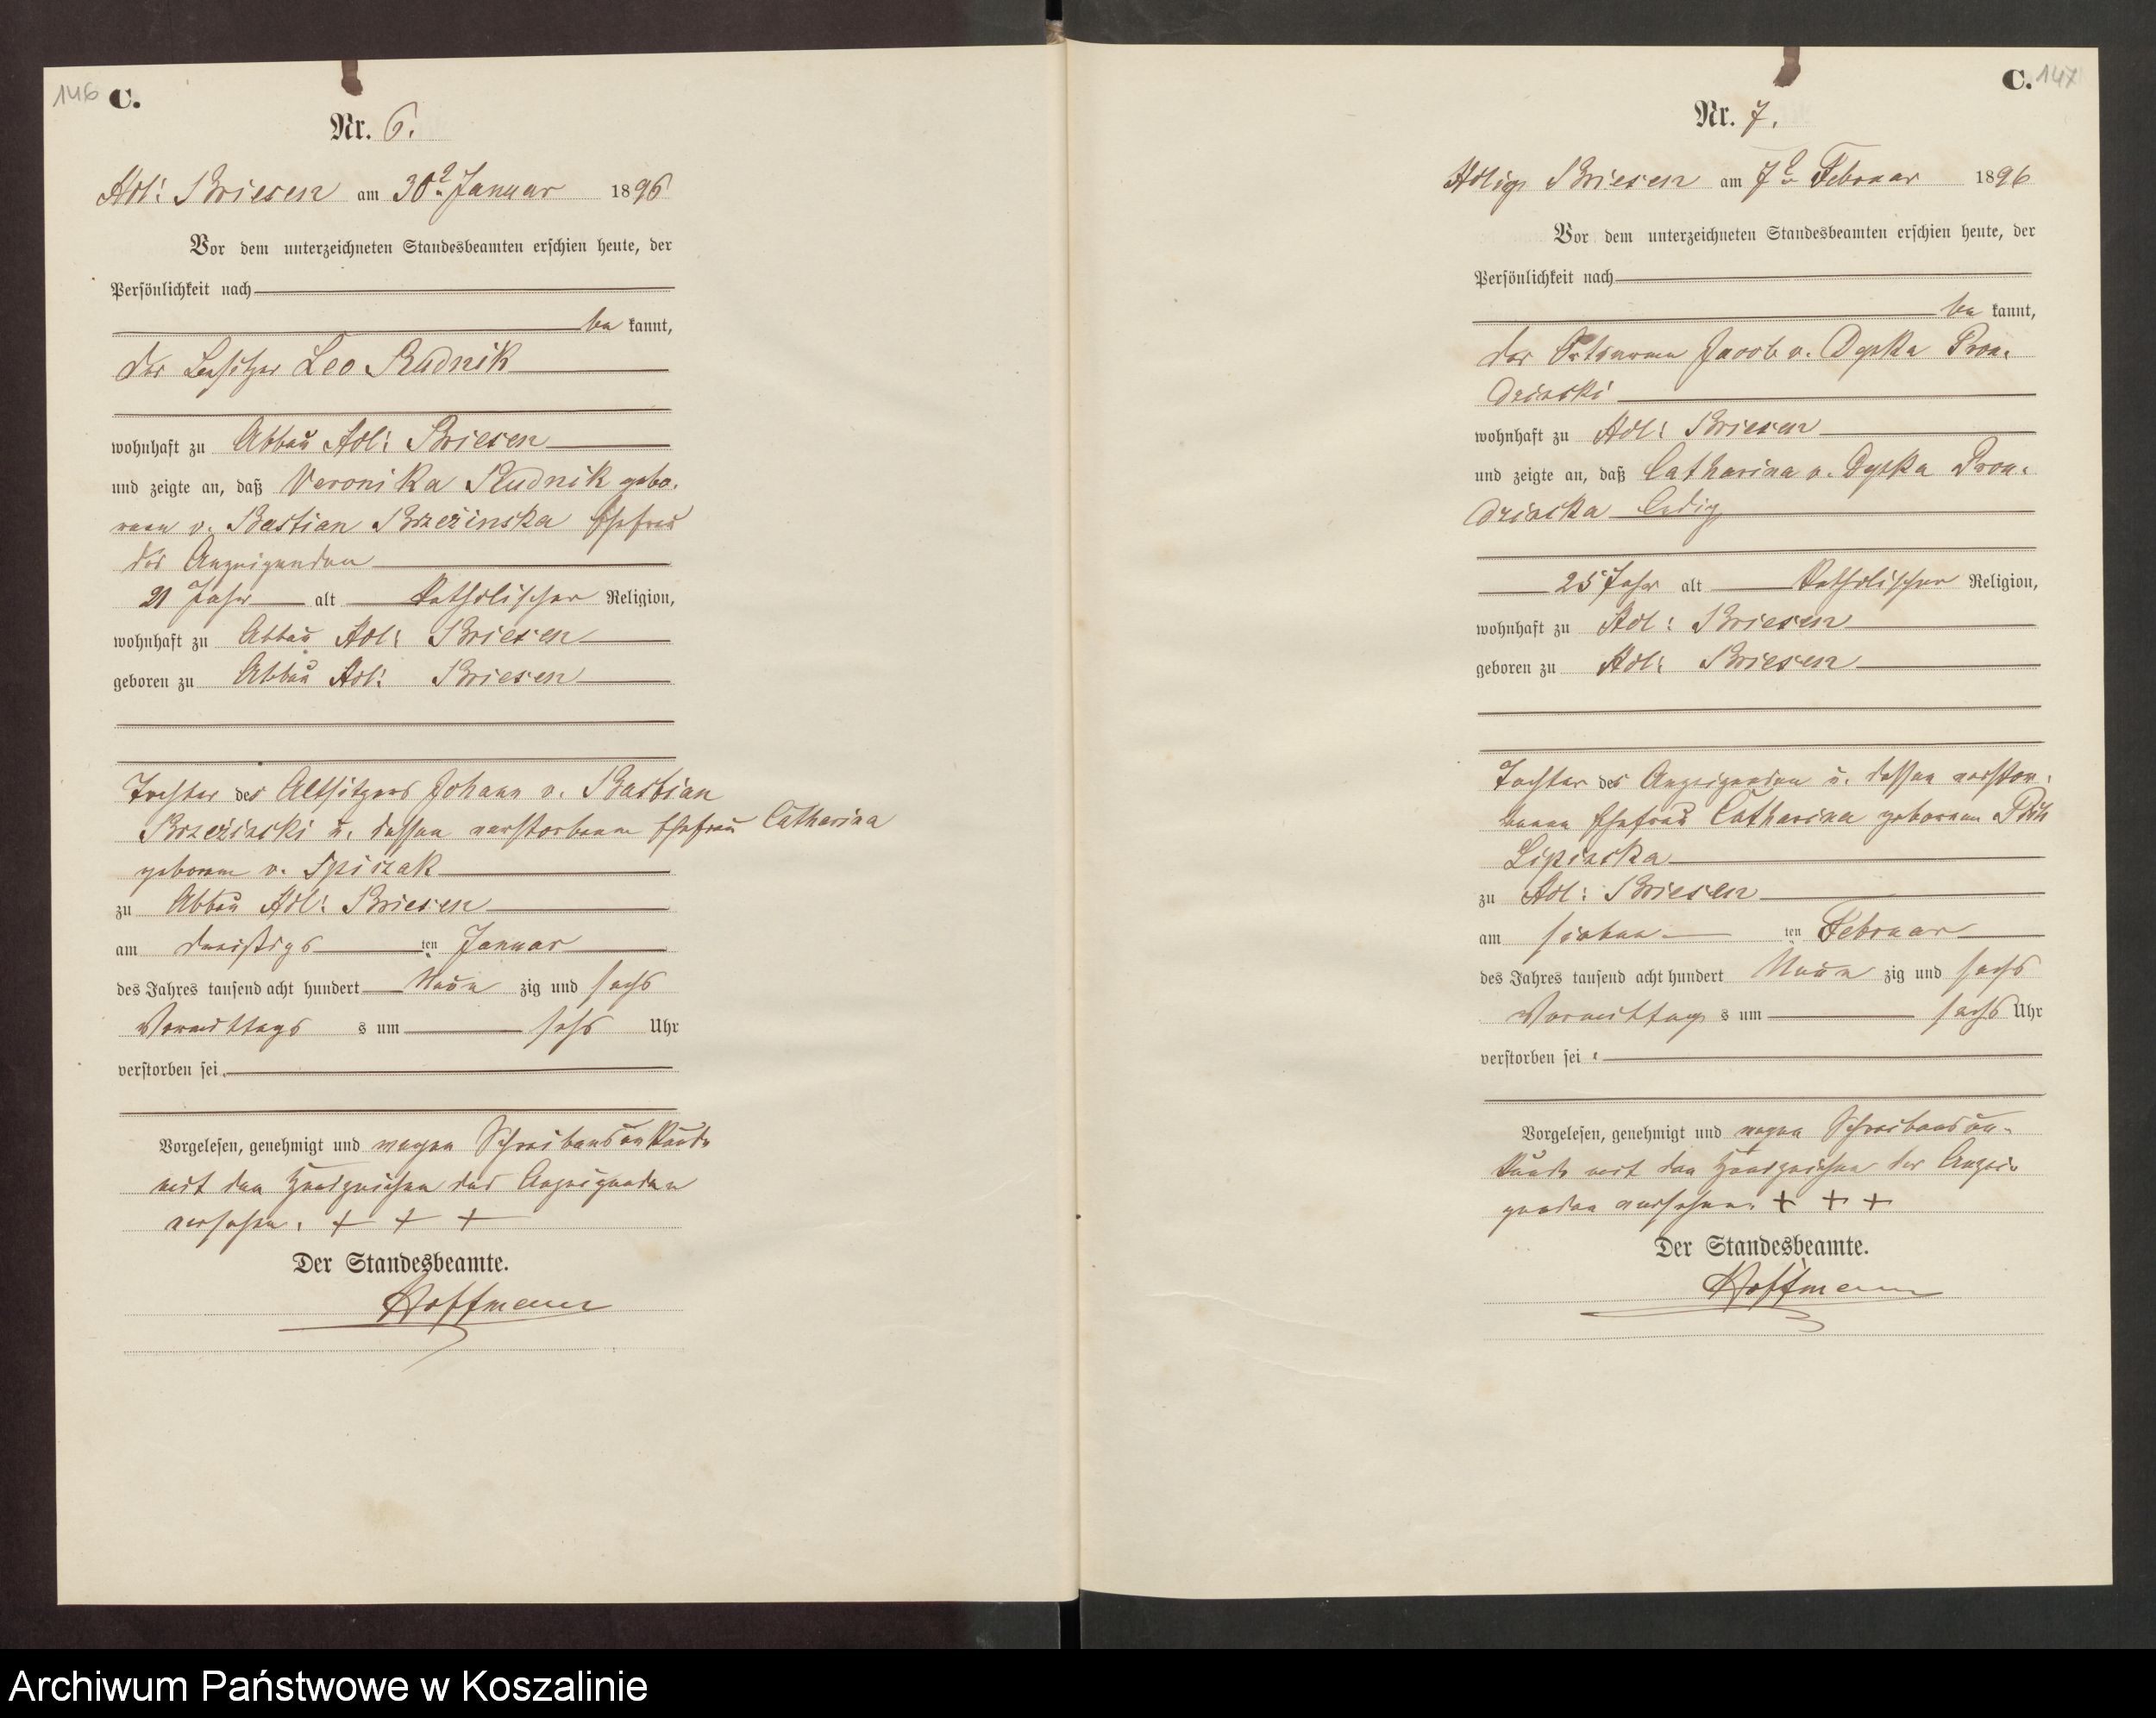 146 C.
Nr. 6.
Adl: Briesen am 30t Januar 1896
Vor dem unterzeichneten Standesbeamten erschien heute, der
Persönlichkeit nach
be kannt,
der Besitzer Leo Rudnik
wohnhaft zu Abbau Adl: Briesen
und zeigte an, daß Veronika Rudnik gebo-
rene v. Bastian Brzezinska Ehefrau
des Anzeigenden
21 Jahr alt katholischer Religion,
wohnhaft zu Abbau Adl: Briesen
geboren zu Abbau Adl: Briesen
Tochter des Altsitzers Johann v. Bastian
Brzezinski u. dessen verstorbene Ehefrau Catharina
geborene v. Spiczak
zu Abbau Adl: Briesen
am dreißigs ten Januar
des Jahres tausend acht hundert Neun zig und sechs
Vormittags s um sechs Uhr
verstorben sei.
Vorgelesen, genehmigt und wegen Schreibensunkunde
mit den Handzeichen des Anzeigenden
versehen. + + +
Der Standesbeamte.
Hoffmann
C. 147
Nr. 7.
Adlig Briesen am 7t Februar 1896
Vor dem unterzeichneten Standesbeamten erschien heute, der
Persönlichkeit nach
be kannt,
der Ortsarme Jacob v. Dypka Pron-
dzinski
wohnhaft zu Adl: Briesen
und zeigte an, daß Catharina v. Dypka Pron-
dzinska ledig
25 Jahr alt katholischer Religion,
wohnhaft zu Adl: Briesen
geboren zu Adl: Briesen
Tochter des Anzeigenden u. dessen verstor-
benen Ehefrau Catharina geborenen
Lipinska
zu Adl: Briesen
am sieben ten Februar
des Jahres tausend acht hundert Neun zig und sechs
Vormittag s um sechs Uhr
verstorben sei.
Vorgelesen, genehmigt und wegen Schreibensun-
kunde mit den Handzeichen des Anzei-
genden versehen. + + +
Der Standesbeamte.
Hoffmann
Archiwum Państwowe w Koszalinie